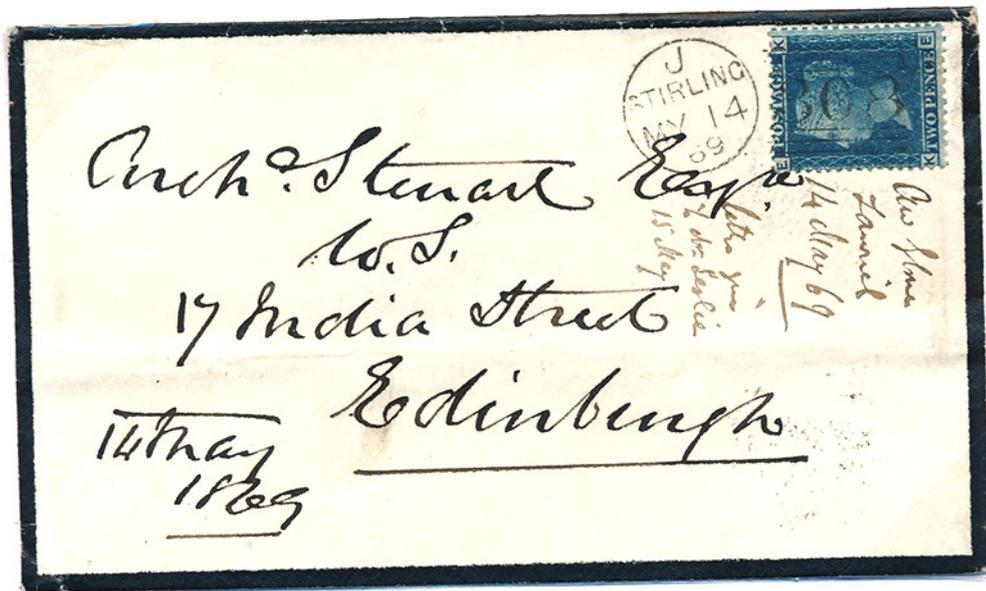 J
STIRLING
MY 14
69
K
POSTAGE
E
E
TWO PENCE
K
308
Archd. Stewart Esqre
W.S.
17 India Street
Edinburgh
14th May
1869
14 May 69
letter
Leslie
15 May